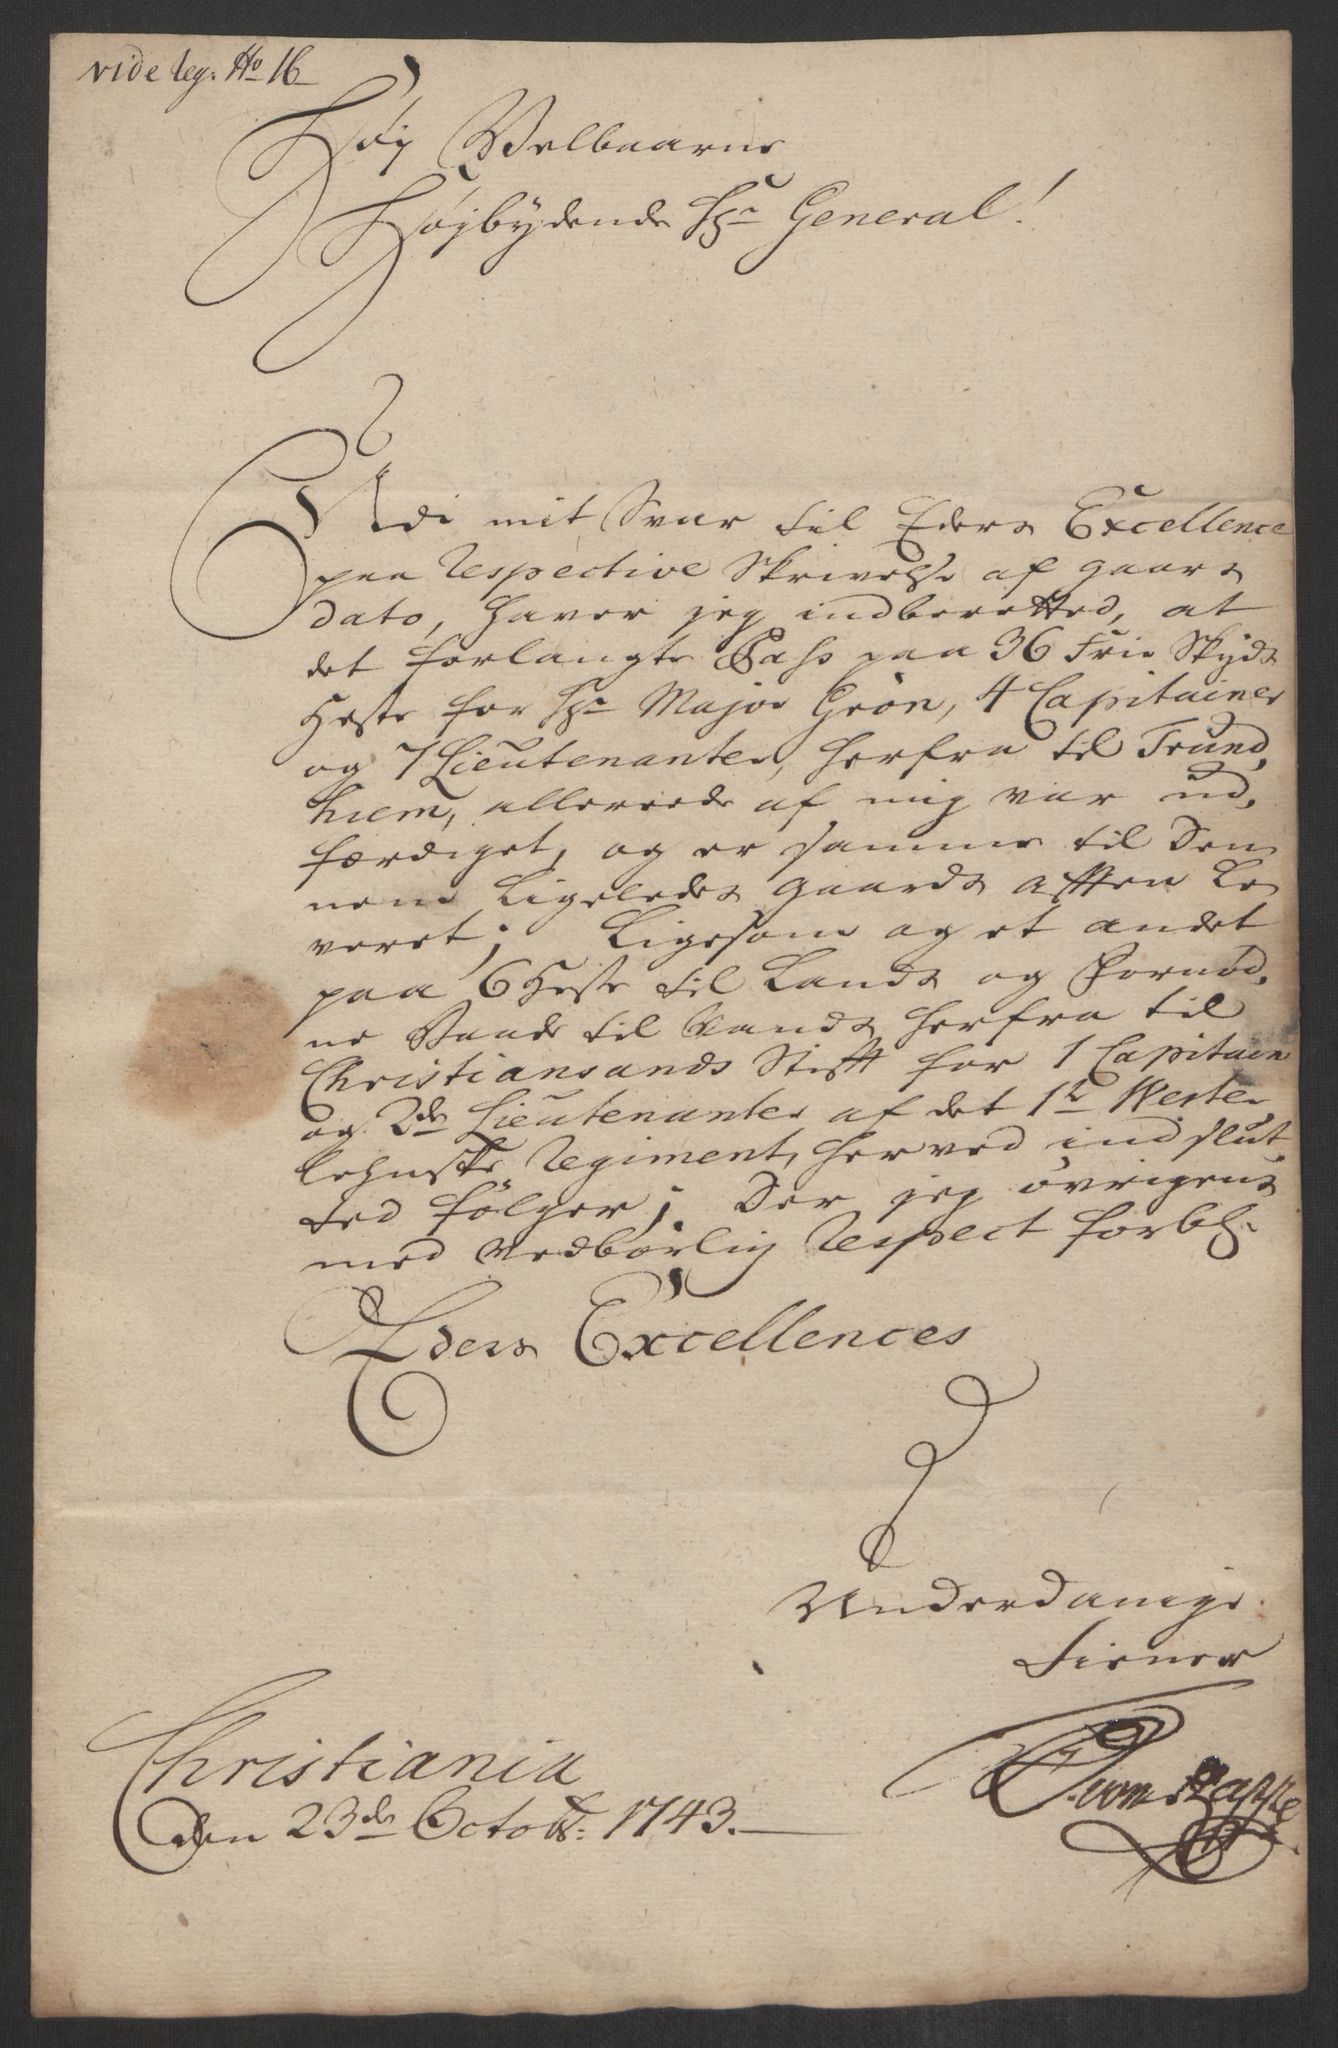 vide leg. No 16
Høy Velbaarne
Høybydende Hr General!
Udi mit Svar til Eders Excellence
paa respective Skrivelse af gaars
dato, haver jeg indberetted, at
det forlangte Pass paa 36 Frie Skyds
Heste for Hr Major Grøn, 4 Capitainer
og 7 Lieutenanter, herfra til Trund,
hiem, allereede af mig var ud,
færdiget, og er samme til Den
nem Ligeledes gaards afften Le
veret; Ligesom og et andet
paa 6 Heste til Lands og Fornød,
ne Baade til Vands herfra til
Christiansands Stifft for 1 Capitain
og 2de Lieutenanter af det 1te Wester
lehnske Regiment, herved indslut,
ted følger; Der jeg øvrigens
med vedbørlig Respect forbl.
Eders Excellences
Underdanige
Tiener
Christiania
den 23de Octobr: 1743.